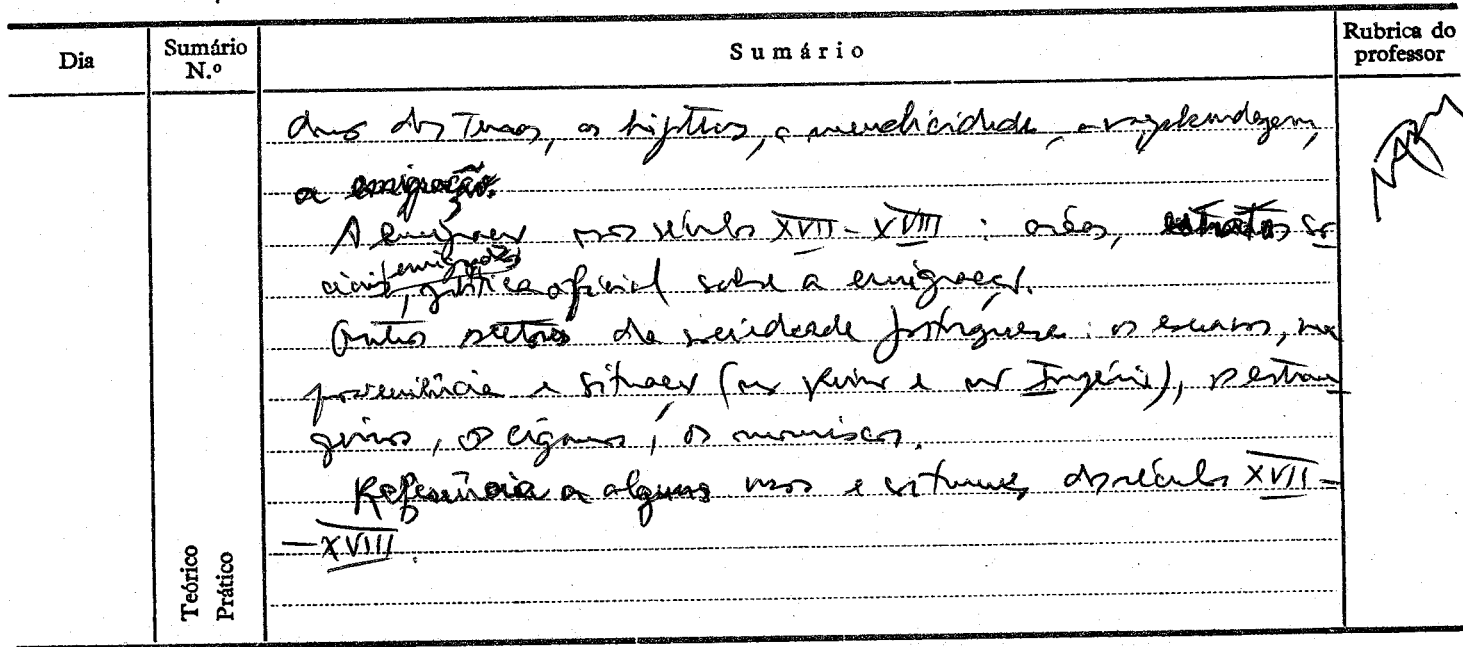 Dia
Sumário N.º
Sumário
Rubrica do professor
a mendicidade, a vagabundagem,
a emigração.
A emigração nos séculos XVII - XVIII : áreas, estratos so
ciais emigrados, política oficial sobre a emigração.
Outros sectores da sociedade portuguesa: os escravos, sua
proveniência e situação (no Reino e no Império), os estran
geiros, os ciganos, os mouriscos.
Referência a alguns usos e costumes dos séculos XVII -
- XVIII.
Teórico
Prático